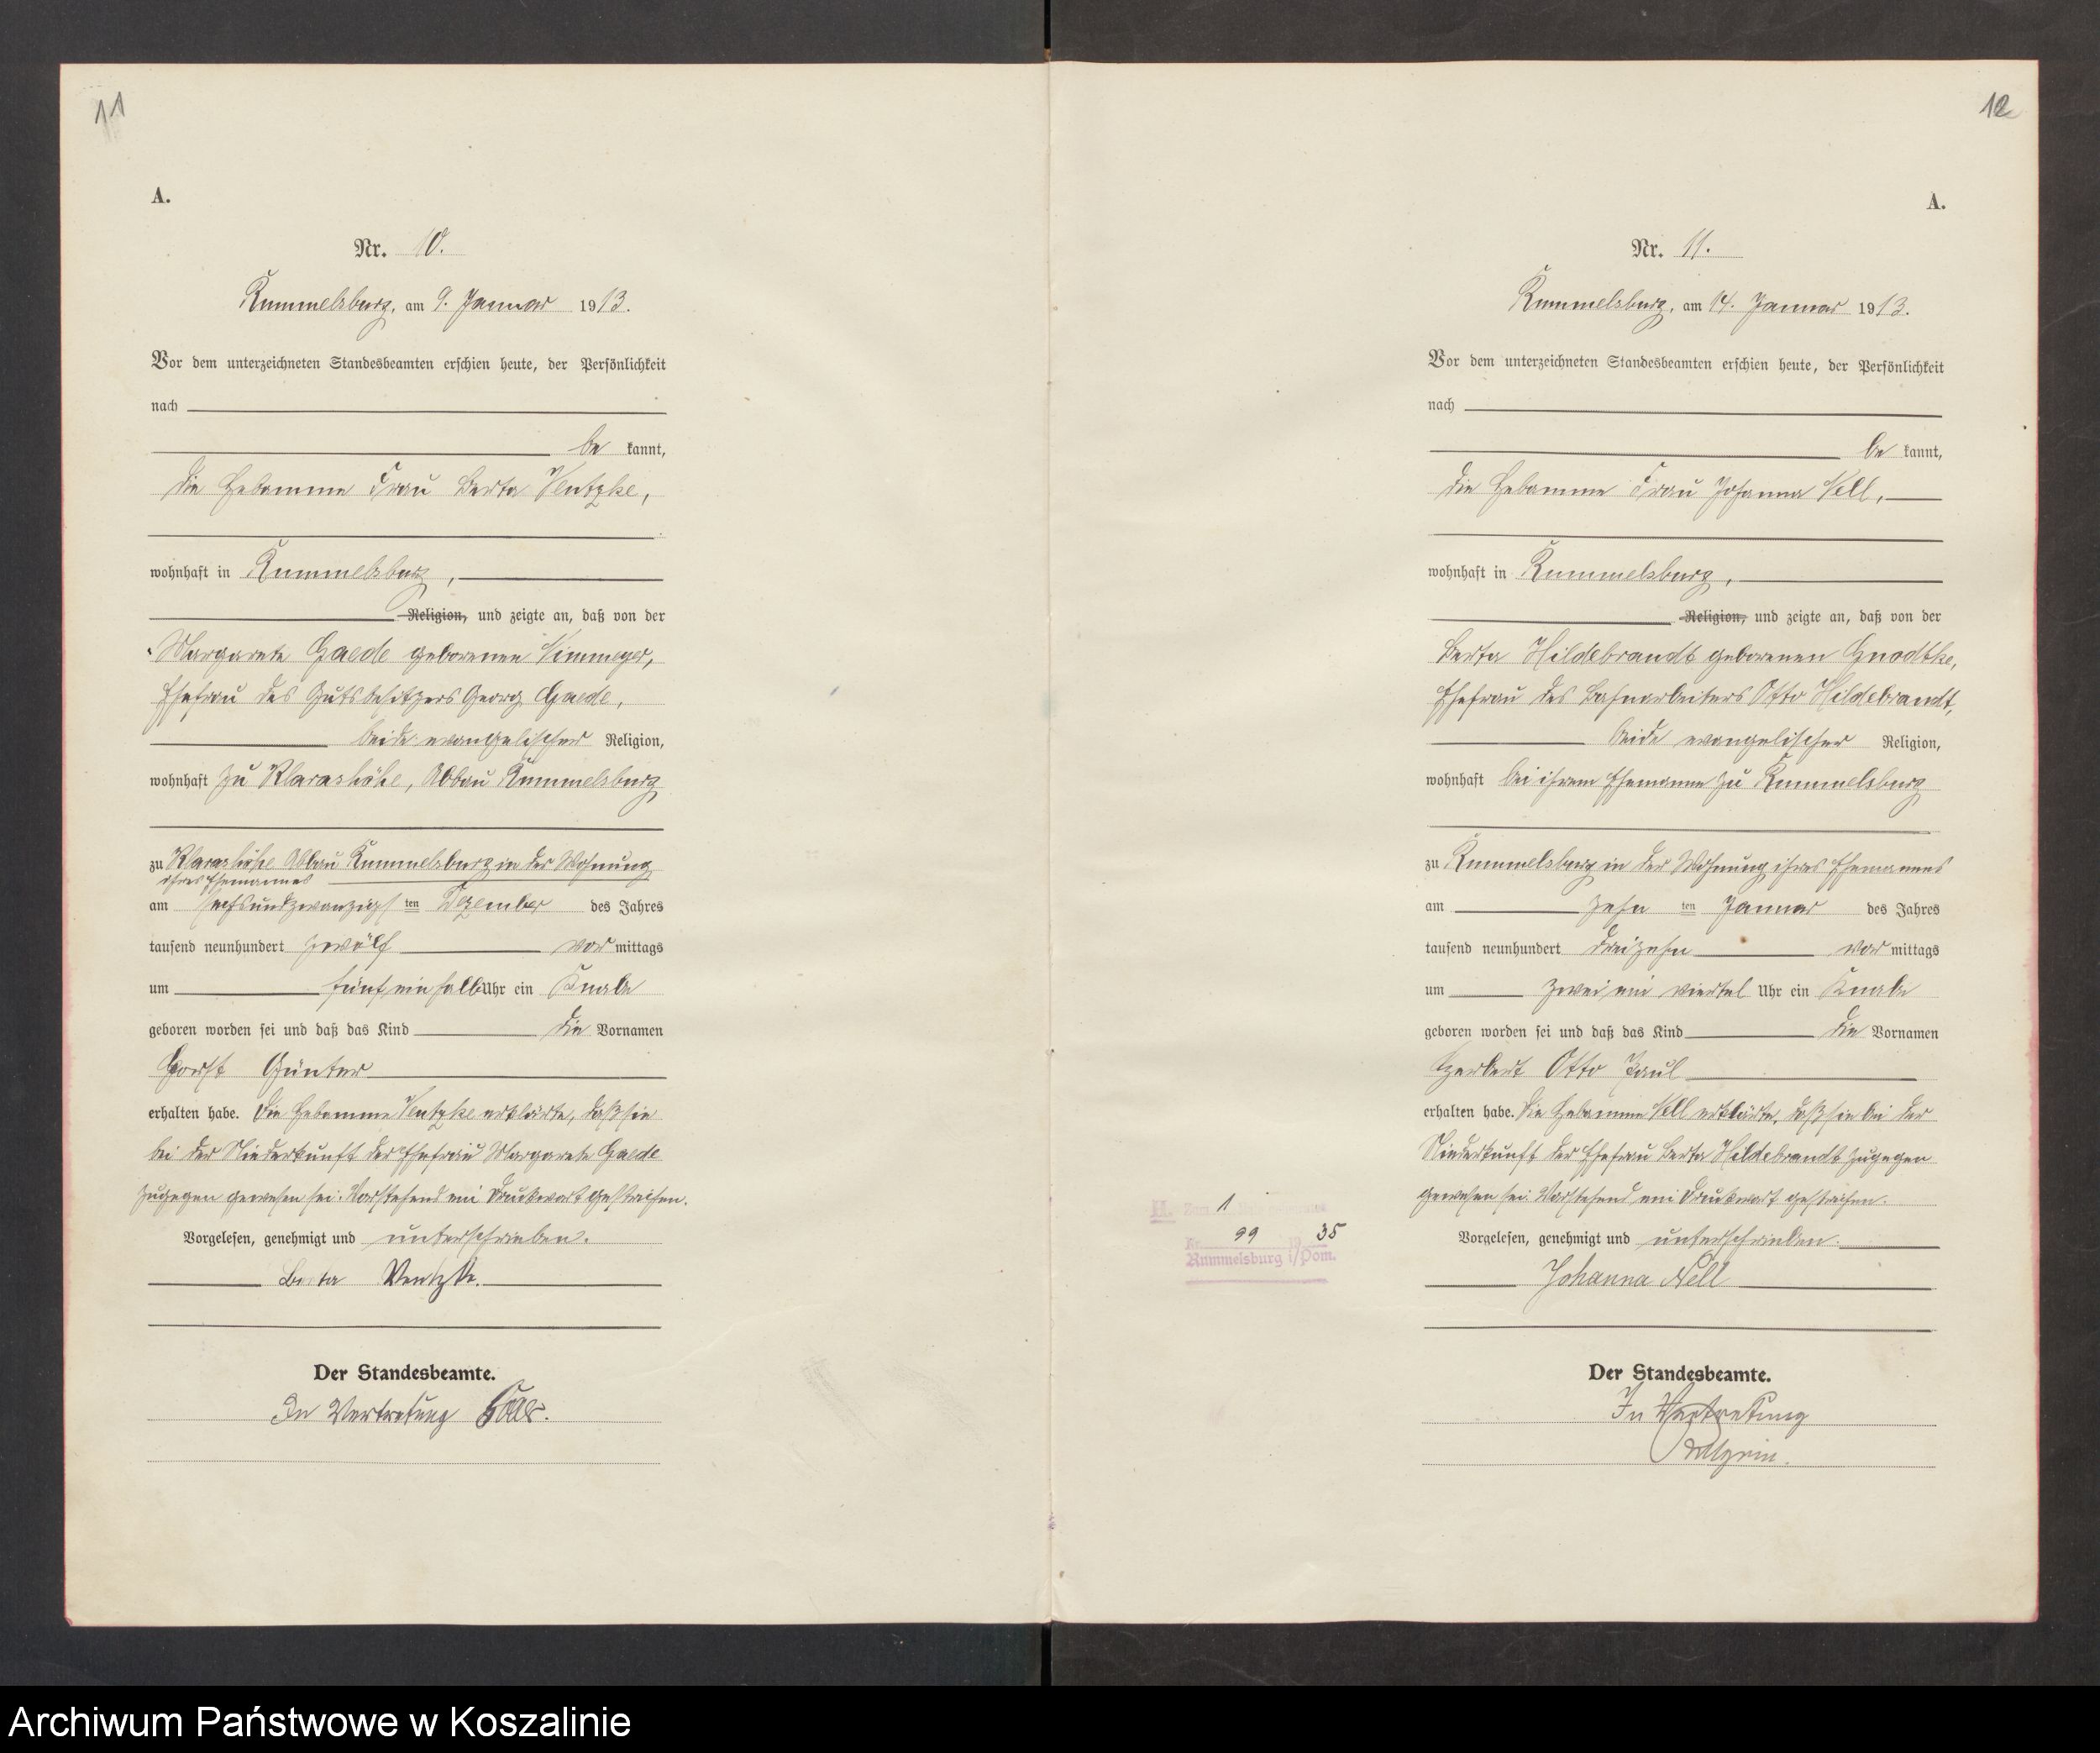 11
A.
Nr. 10.
Rummelsburg, am 9. Januar 1913.
Vor dem unterzeichneten Standesbeamten erschien heute, der Persönlichkeit
nach
be kannt,
die Hebamme Frau Berta Ventzke,
wohnhaft in Rummelsburg,
Religion, und zeigte an, daß von der
Margarete Gaede geborenen
Ehefrau des Gutsbesitzers Georg Gaede,
beide evangelischer Religion,
wohnhaft zu Klarashöhe, Abbau Rummelsburg
zu Klarashöhe Abbau Rummelsburg in der Wohnung
ihres Ehemannes
am sechsundzwanzigsten Dezember des Jahres
tausend neunhundert zwölf vor mittags
um fünf einhalb Uhr ein Knabe
geboren worden sei und daß das Kind die Vornamen
Horst Günter
erhalten habe. Die Hebamme Ventzke erklärte, daß sie
bei der Niederkunft der Ehefrau Margarete Gaede
zugegen gewesen sei. Vorstehend ein Druckwort gestrichen.
Vorgelesen, genehmigt und unterschrieben.
Berta Ventzke.
Der Standesbeamte.
In Vertretung
12
A.
Nr. 11.
Rummelsburg, am 14. Januar 1913.
Vor dem unterzeichneten Standesbeamten erschien heute, der Persönlichkeit
nach
be kannt,
die Hebamme Frau Johanna Nell,
wohnhaft in Rummelsburg,
Religion, und zeigte an, daß von der
Berta Hildebrandt geborenen Gnodtke,
Ehefrau des Bahnarbeiters Otto Hildebrandt,
beide evangelischer Religion,
wohnhaft bei ihrem Ehemanne zu Rummelsburg
zu Rummelsburg in der Wohnung ihres Ehemannes
am zehn ten Januar des Jahres
tausend neunhundert dreizehn vor mittags
um zwei ein viertel Uhr ein Knabe
geboren worden sei und daß das Kind die Vornamen
Herbert Otto Paul
erhalten habe. Die Hebamme Nell erklärte, daß sie bei der
Niederkunft der Ehefrau Berta Hildebrandt zugegen
gewesen sei. Vorstehend ein Druckwort gestrichen.
Vorgelesen, genehmigt und unterschrieben.
Johanna Nell
Der Standesbeamte.
In Vertretung
H. 1
Nr. 99 35
Rummelsburg i/Pom.
Archiwum Państwowe w Koszalinie